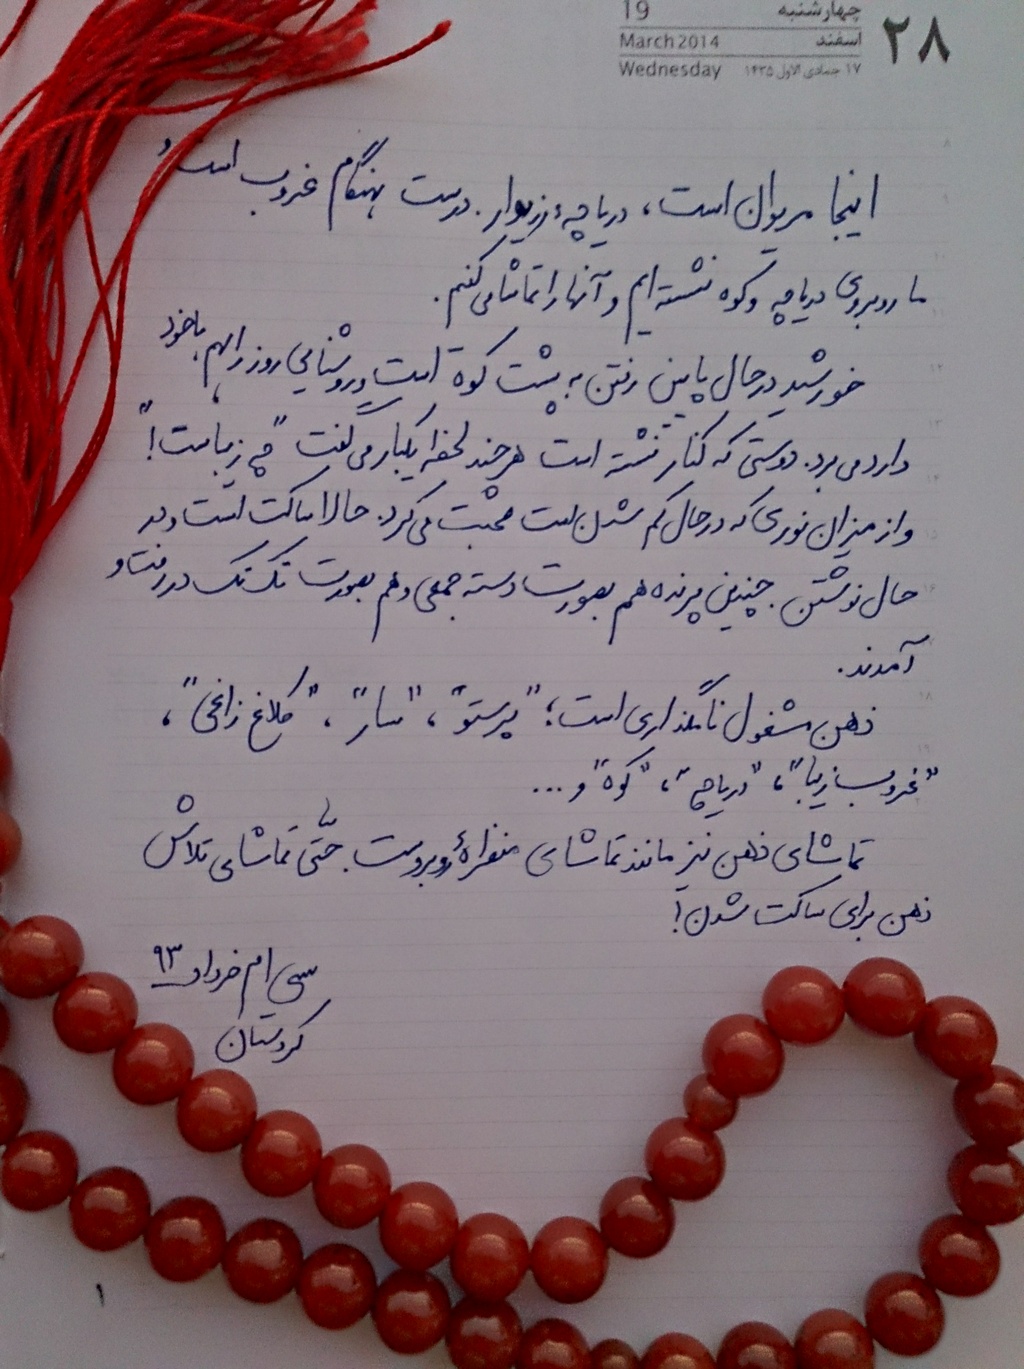 چهارشنبه 19
۲۸ اسفند March 2014
۱۷ جمادی الاول ۱۴۳۵ Wednesday
اینجا مریوان است، دریاچهٔ زریوار. درست هنگام غروب است و
ما روبروی دریاچه و کوه نشسته ایم و آنها را تماشا می کنیم.
خورشید در حال پایین رفتن به پشت کوه است و روشنایی روز را هم باخود
دارد می برد. دوستی که کنار نشسته است هر چند لحظه یکبار می گفت "چه زیباست!"
و از میزان نوری که در حال کم شدن است صحبت می کرد. حالا ساکت است و در
حال نوشتن. چندین پرنده هم بصورت دسته جمعی و هم بصورت تک تک در رفت و
آمدند.
ذهن مشغول نامگذاری است؛ "پرستو"، "سار"، "کلاغ زاغی"،
"غروب زیبا"، "دریاچه"، "کوه" و ...
تماشای ذهن نیز مانند تماشای منظرهٔ روبروست. حتّی تماشای تلاش
ذهن برای ساکت شدن!
سی ام خرداد ۹۳
کردستان